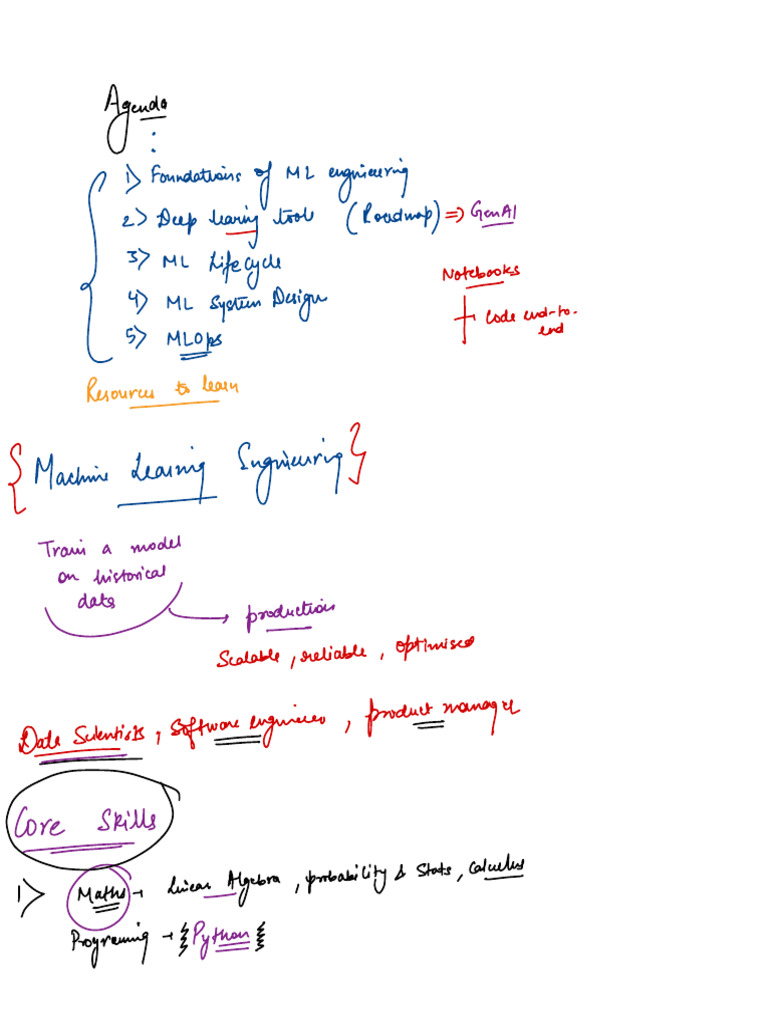 Agenda
:
1) Foundations of ML engineering
2) Deep learing tools (Roadmap) => GenAI
3) ML Lifecycle
4) ML System Design
5) MLOps
Notebooks
Code end-to-
end
Resources to learn
{ Machine Learning Engineering }
Train a model
on historical
data
production
Scalable, reliable, optimised
Data Scientists, Software engineers, product manager
Core Skills
1) Maths → Linear Algebra, probability & Stats, Calculus
Programing → { Python }